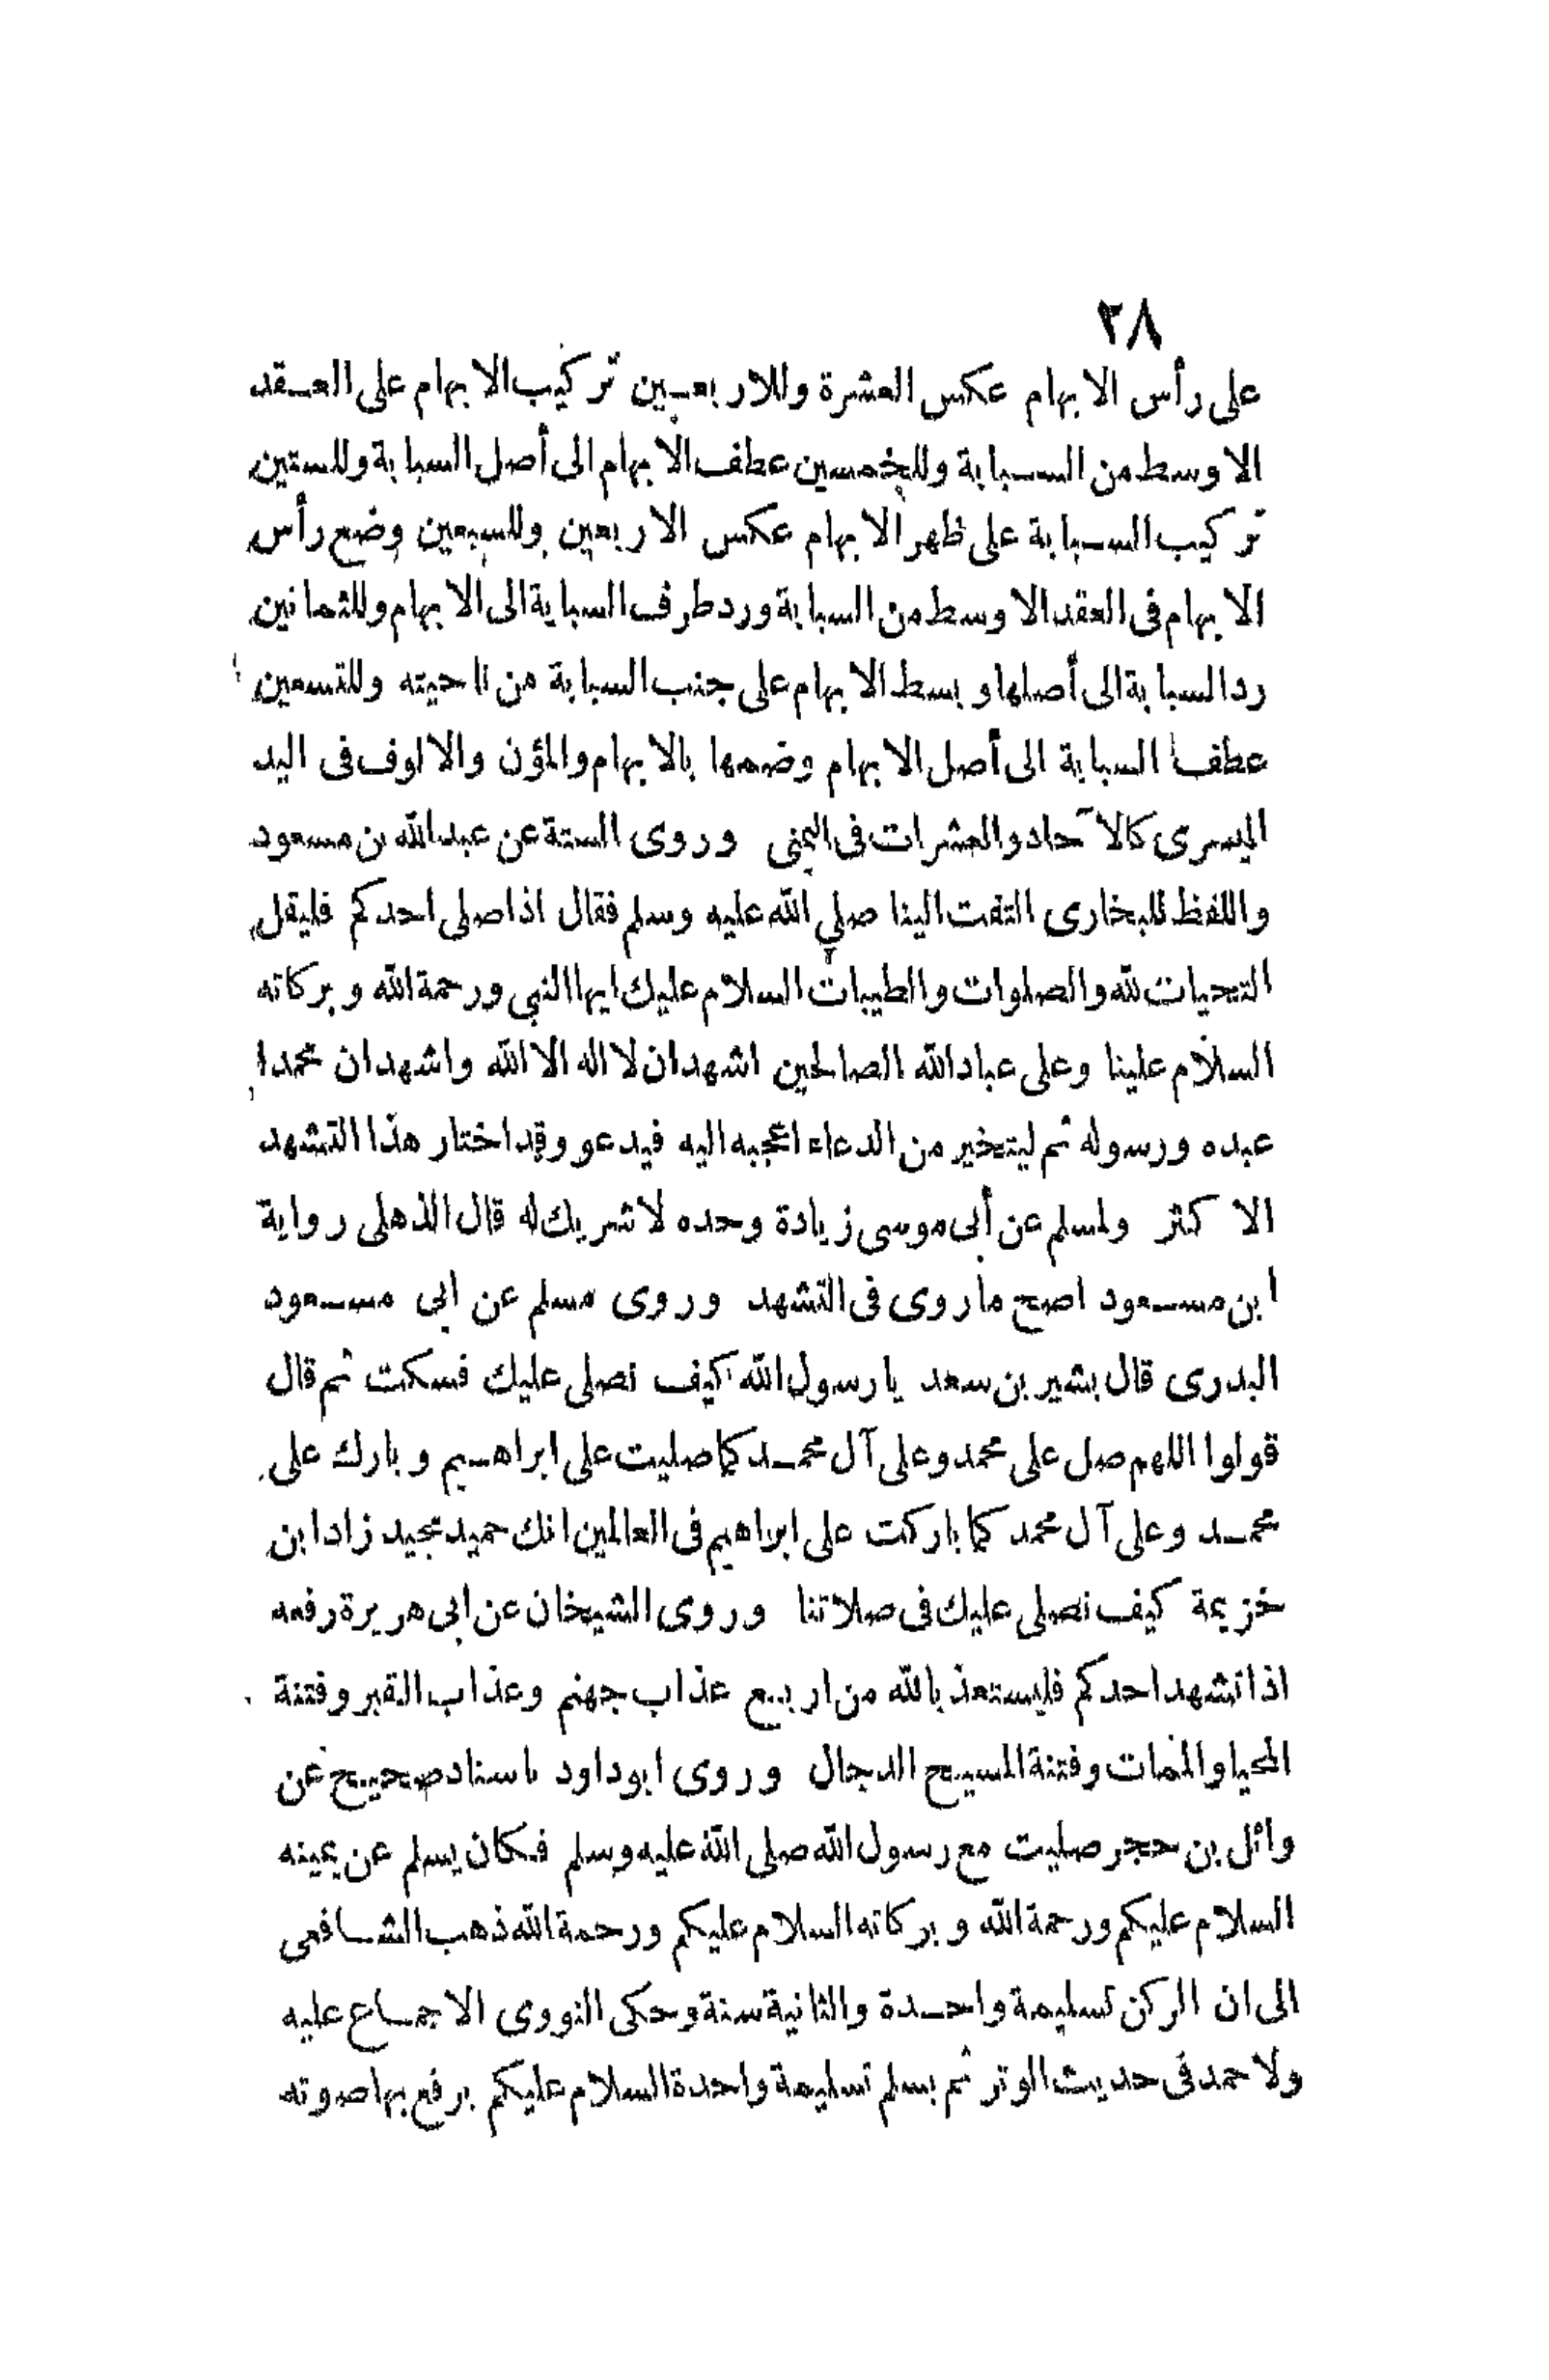 ٣٨
على رأس الابهام عكس العشرة وللاربعين تركيب الابهام على العقد
الاوسط من السبابة وللخمسين عطف الابهام الى أصل السبابة وللستين
تركيب السبابة على ظهر الابهام عكس الاربعين وللسبعين وضع رأس
الابهام فى العقد الاوسط من السبابة ورد طرف السبابة الى الابهام وللثمانين
رد السبابة الى أصلها وبسط الابهام على جنب السبابة من ناحيته وللتسعين
عطف السبابة الى أصل الابهام وضمها بالابهام والمؤن والالوف فى اليد
اليسرى كالآحاد والعشرات فى اليمنى وروى الستة عن عبد الله بن مسعود
واللفظ للبخارى التفت الينا صلى الله عليه وسلم فقال اذا صلى احدكم فليقل
التحيات لله والصلوات والطيبات السلام عليك ايها النبى ورحمة الله وبركاته
السلام علينا وعلى عباد الله الصالحين اشهد ان لا اله الا الله واشهد ان محمدا
عبده ورسوله ثم ليتخير من الدعاء اعجبه اليه فيدعو وقد اختار هذا التشهد
الاكثر ولمسلم عن أبى موسى زيادة وحده لا شريك له قال الذهلى رواية
ابن مسعود اصح ما روى فى التشهد وروى مسلم عن ابى مسعود
البدرى قال بشير بن سعد يا رسول الله كيف نصلى عليك فسكت ثم قال
قولوا اللهم صل على محمد وعلى آل محمد كما صليت على ابراهيم وبارك على
محمد وعلى آل محمد كما باركت على ابراهيم فى العالمين انك حميد مجيد زاد ابن
خزيمة كيف نصلى عليك فى صلاتنا وروى الشيخان عن ابى هريرة رفعه
اذا تشهد احدكم فليستعذ بالله من اربع عذاب جهنم وعذاب القبر وفتنة
المحيا والممات وفتنة المسيح الدجال وروى ابو داود باسناد صحيح عن
وائل بن حجر صليت مع رسول الله صلى الله عليه وسلم فكان يسلم عن يمينه
السلام عليكم ورحمة الله وبركاته السلام عليكم ورحمة الله ذهب الشافعى
الى ان الركن تسليمة واحدة والثانية سنة وحكى النووى الاجماع عليه
ولاحمد فى حديث الوتر ثم يسلم تسليمة واحدة السلام عليكم يرفع بها صوته